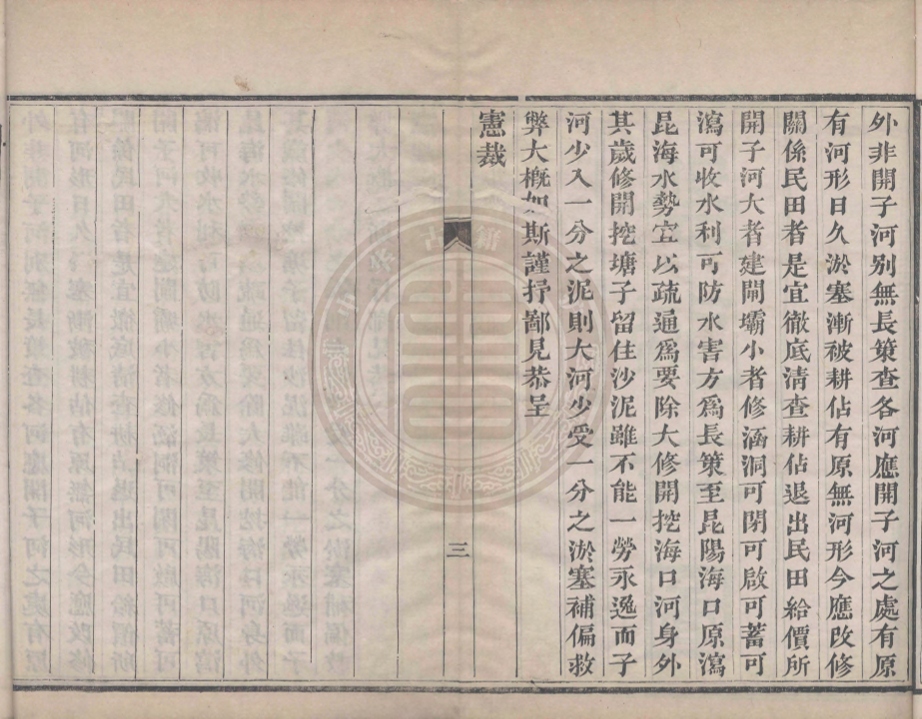 外非開子河別無長策查各河應開子河之處有原
有河形日久淤塞漸被耕佔有原無河形今應改修
關係民田者是宜徹底清查耕佔退出民田給價所
開子河大者建閘壩小者修涵洞可閉可啟可蓄可
瀉可收水利可防水害方爲長策至昆陽海口原瀉
昆海水勢宜以疏通爲要除大修開挖海口河身外
其歲修開挖塘子留住沙泥雖不能一勞永逸而子
河少入一分之泥則大河少受一分之淤塞補偏救
弊大概如斯謹抒鄙見恭呈
憲裁
三